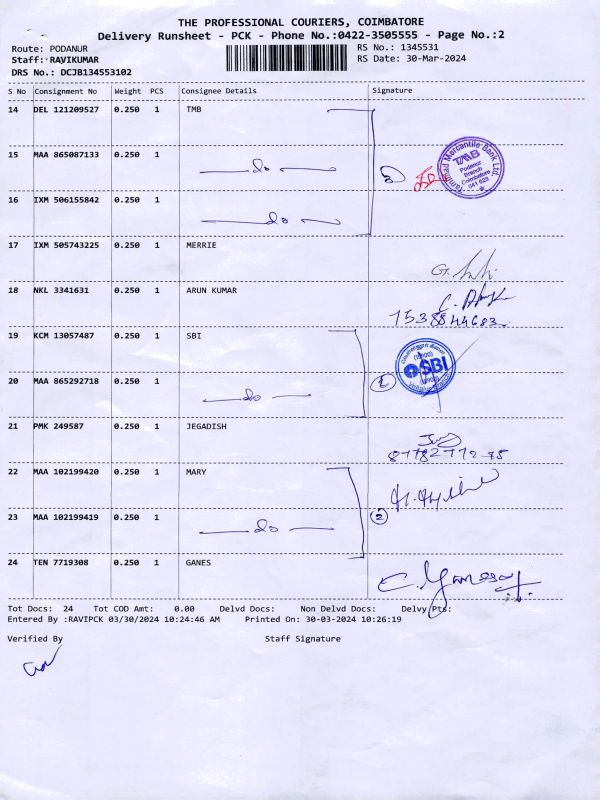 THE PROFESSIONAL COURIERS, COIMBATORE
Delivery Runsheet - PCK - Phone No.:0422-3505555 - Page No.:2
Route: PODANUR RS No.: 1345531
Staff: RAVIKUMAR RS Date: 30-Mar-2024
DRS No.: DCJB134553102
S No Consignment No Weight PCS Consignee Details Signature
14 DEL 121209527 0.250 1 TMB
15 MAA 865087133 0.250 1 do
Tamilnad Mercantile Bank Ltd.
TMB
Podanur
Branch
Coimbatore
641 023
16 IXM 506155842 0.250 1 do
17 IXM 505743225 0.250 1 MERRIE
18 NKL 3341631 0.250 1 ARUN KUMAR
7538844683
19 KCM 13057487 0.250 1 SBI
SBI
20 MAA 865292718 0.250 1 do
21 PMK 249587 0.250 1 JEGADISH
22 MAA 102199420 0.250 1 MARY
23 MAA 102199419 0.250 1 do 2
24 TEN 7719308 0.250 1 GANES
Tot Docs: 24 Tot COD Amt: 0.00 Delvd Docs: Non Delvd Docs: Delvy Pts:
Entered By :RAVIPCK 03/30/2024 10:24:46 AM Printed On: 30-03-2024 10:26:19
Verified By Staff Signature